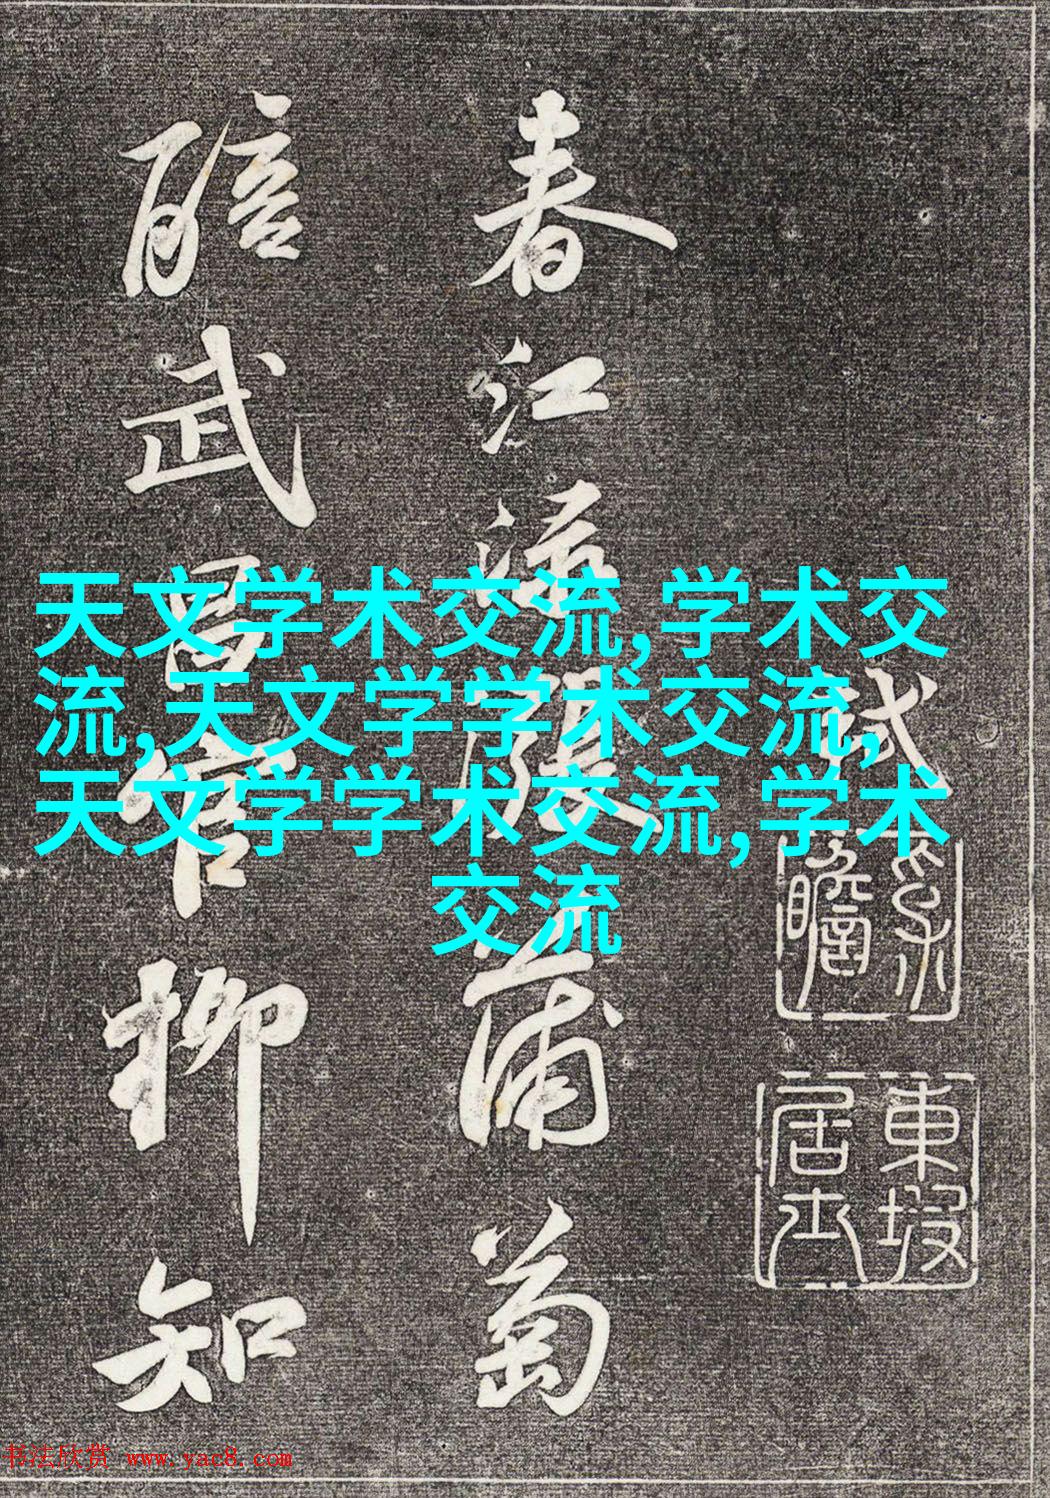 軾
東坡居士
春江淥漲蒲萄
醅武昌官柳知
天文学术交流,学术交
流,天文学学术交流,
天文学学术交流,学术
交流
书法欣赏 www.yac8.com